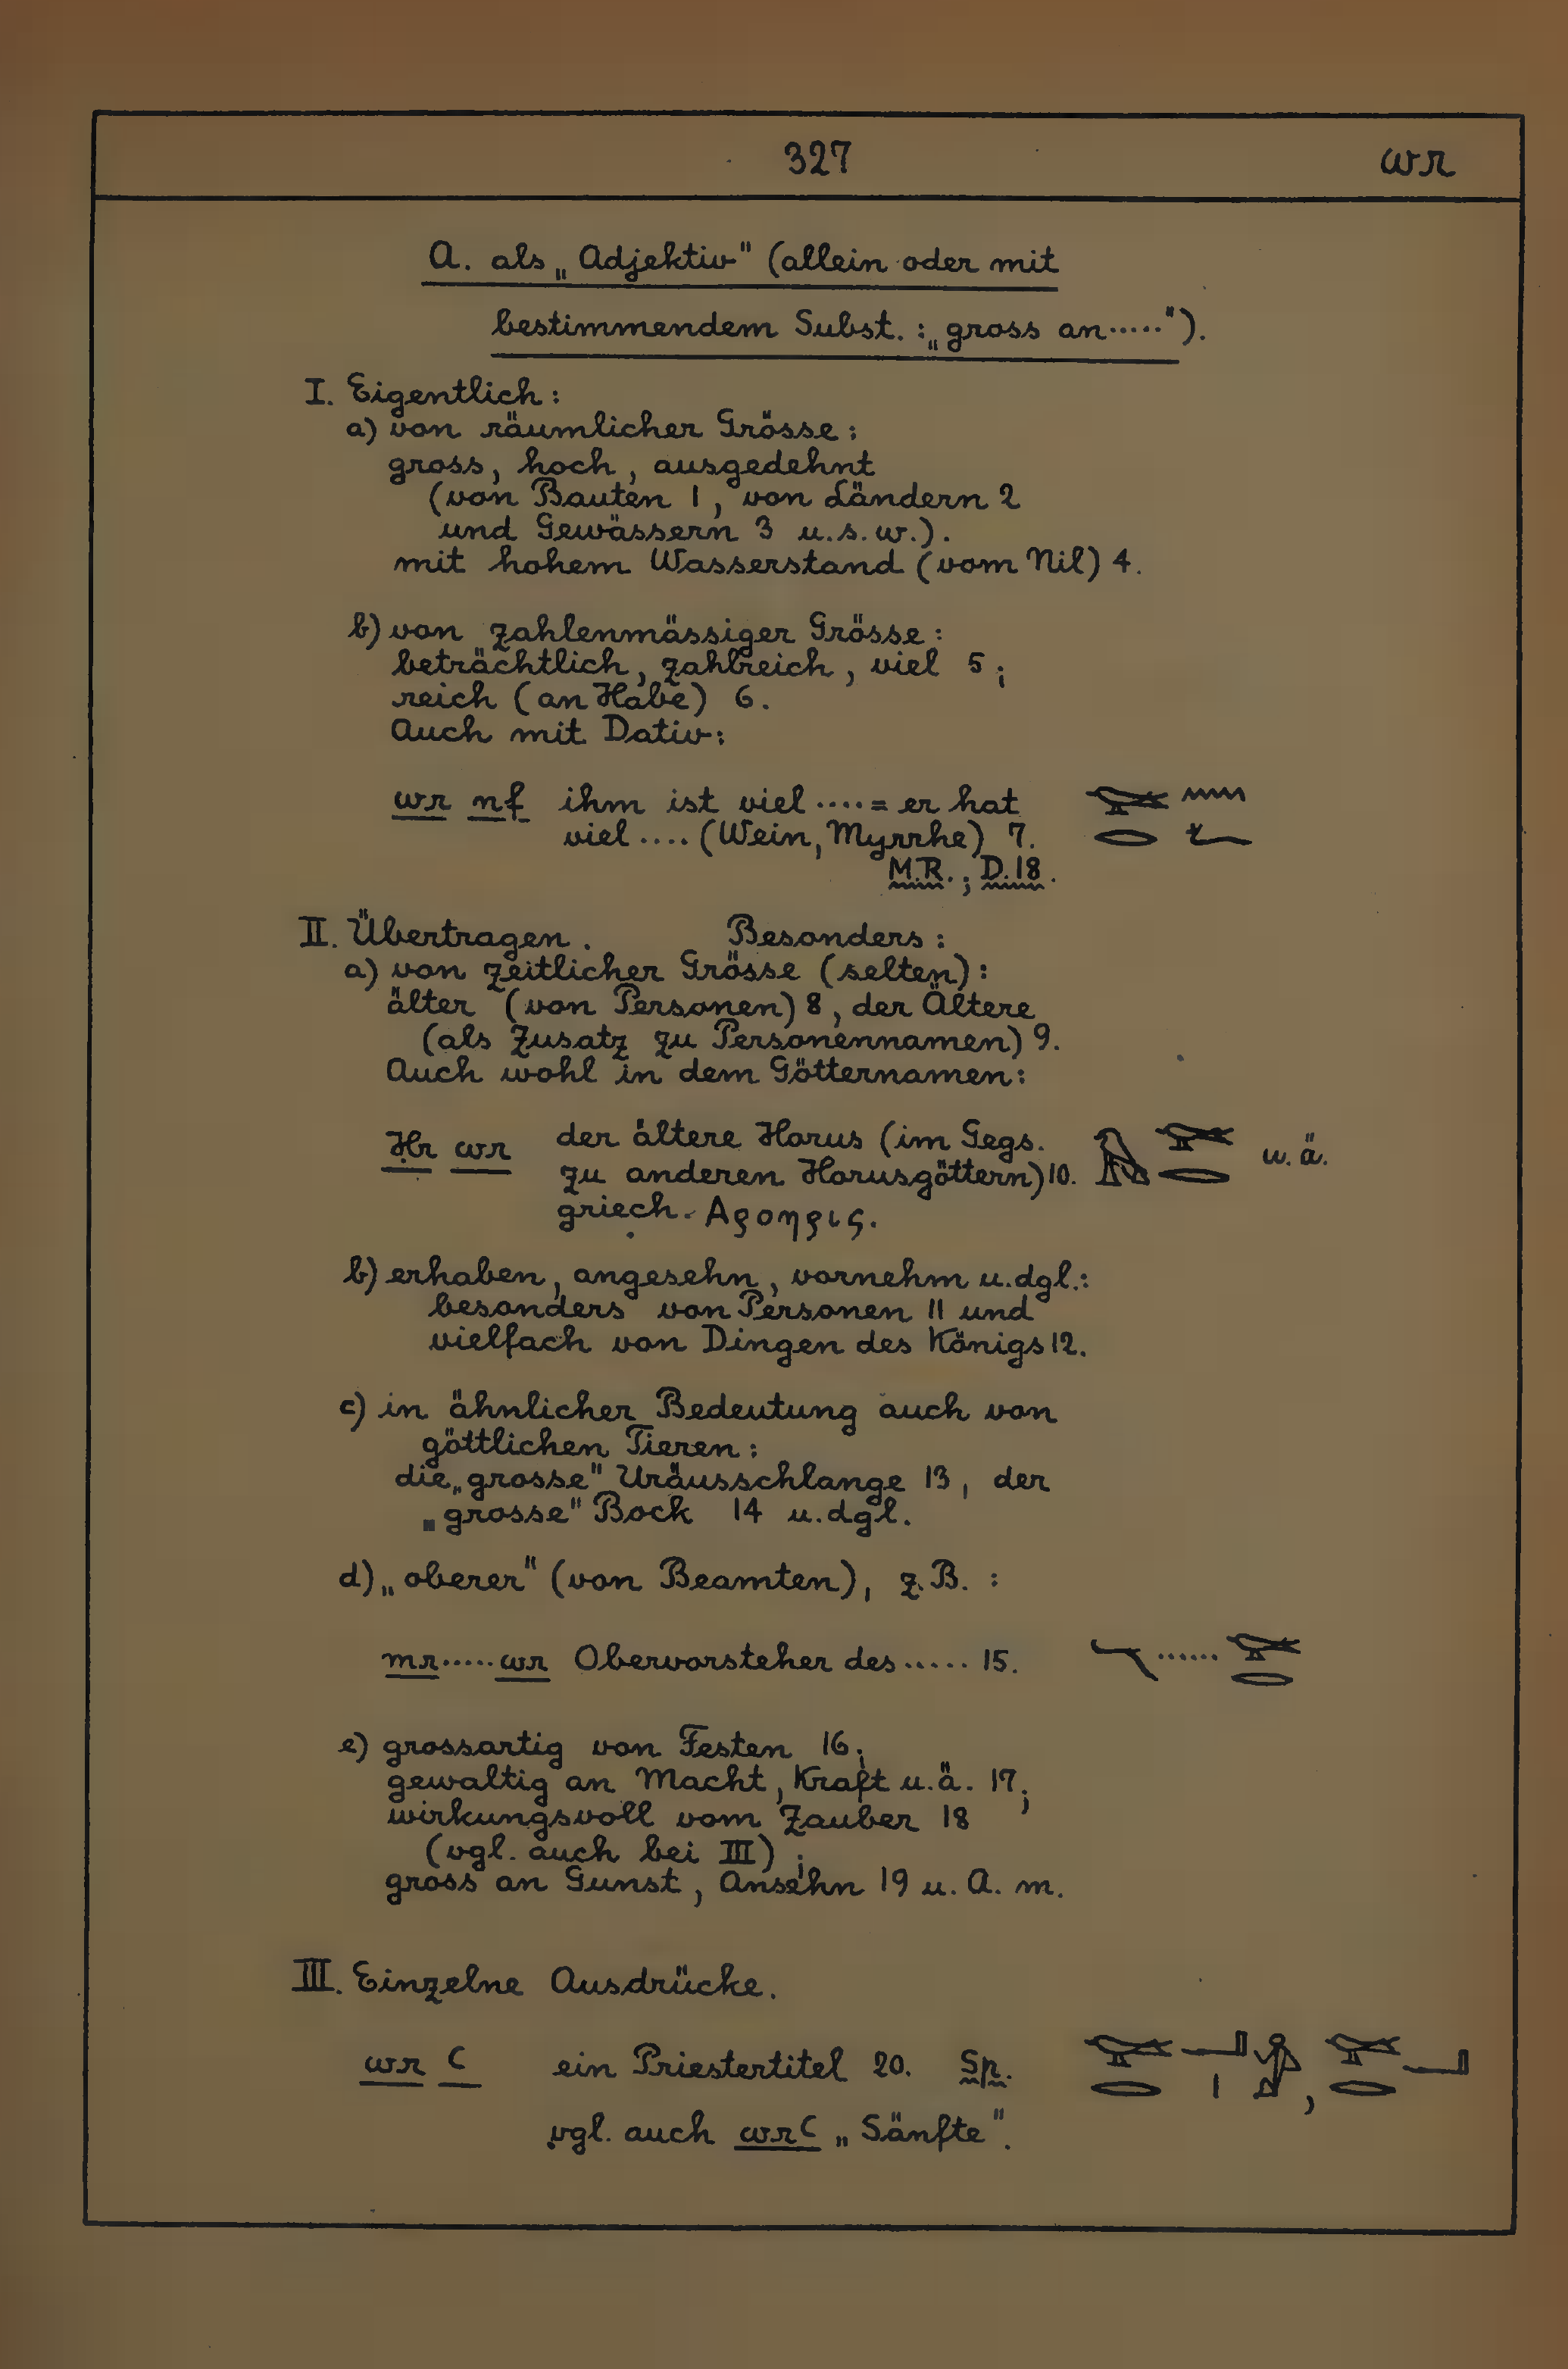 327 wr
A. als „Adjektiv" (allein oder mit
bestimmendem Subst. : „gross an ·····").
I. Eigentlich:
a) von räumlicher Grösse:
gross, hoch, ausgedehnt
(von Bauten 1, von Ländern 2
und Gewässern 3 u.s.w.).
mit hohem Wasserstand (vom Nil) 4.
b) von zahlenmässiger Grösse:
beträchtlich, zahlreich, viel 5;
reich (an Habe) 6.
Auch mit Dativ:
wr nf ihm ist viel ···· = er hat 𓅨𓂋𓈖𓆑
viel ···· (Wein, Myrrhe) 7.
M.R.; D.18.
II. Übertragen. Besonders:
a) von zeitlicher Grösse (selten):
älter (von Personen) 8, der Ältere
(als Zusatz zu Personennamen) 9.
Auch wohl in dem Götternamen:
Ḥr wr der ältere Horus (im Gegs. 𓅃𓅨𓂋 u. ä.
zu anderen Horusgöttern) 10.
griech. Αροηρις.
b) erhaben, angesehn, vornehm u. dgl.:
besonders von Personen 11 und
vielfach von Dingen des Königs 12.
c) in ähnlicher Bedeutung auch von
göttlichen Tieren:
die „grosse" Uräusschlange 13, der
„grosse" Bock 14 u. dgl.
d) „oberer" (von Beamten), z.B. :
mr ····· wr Obervorsteher des ····· 15. 𓌸 ······ 𓅨𓂋
e) grossartig von Festen 16;
gewaltig an Macht, Kraft u. ä. 17;
wirkungsvoll vom Zauber 18
(vgl. auch bei III);
gross an Gunst, Ansehn 19 u. A. m.
III. Einzelne Ausdrücke.
wr ꜥ ein Priestertitel 20. Sp. 𓅨𓂋𓂝𓏤𓀀, 𓅨𓂋𓂝
vgl. auch wrꜥ „Sänfte".